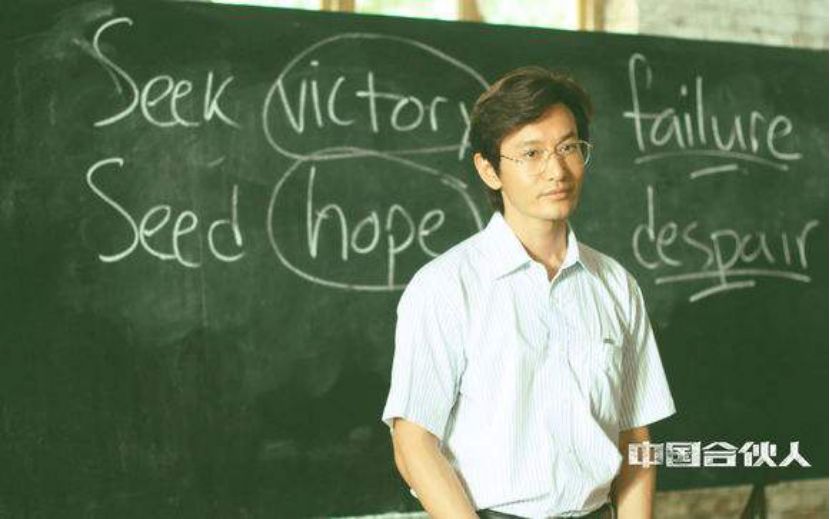 Seek victory failure
Seed hope despair
中国合伙人